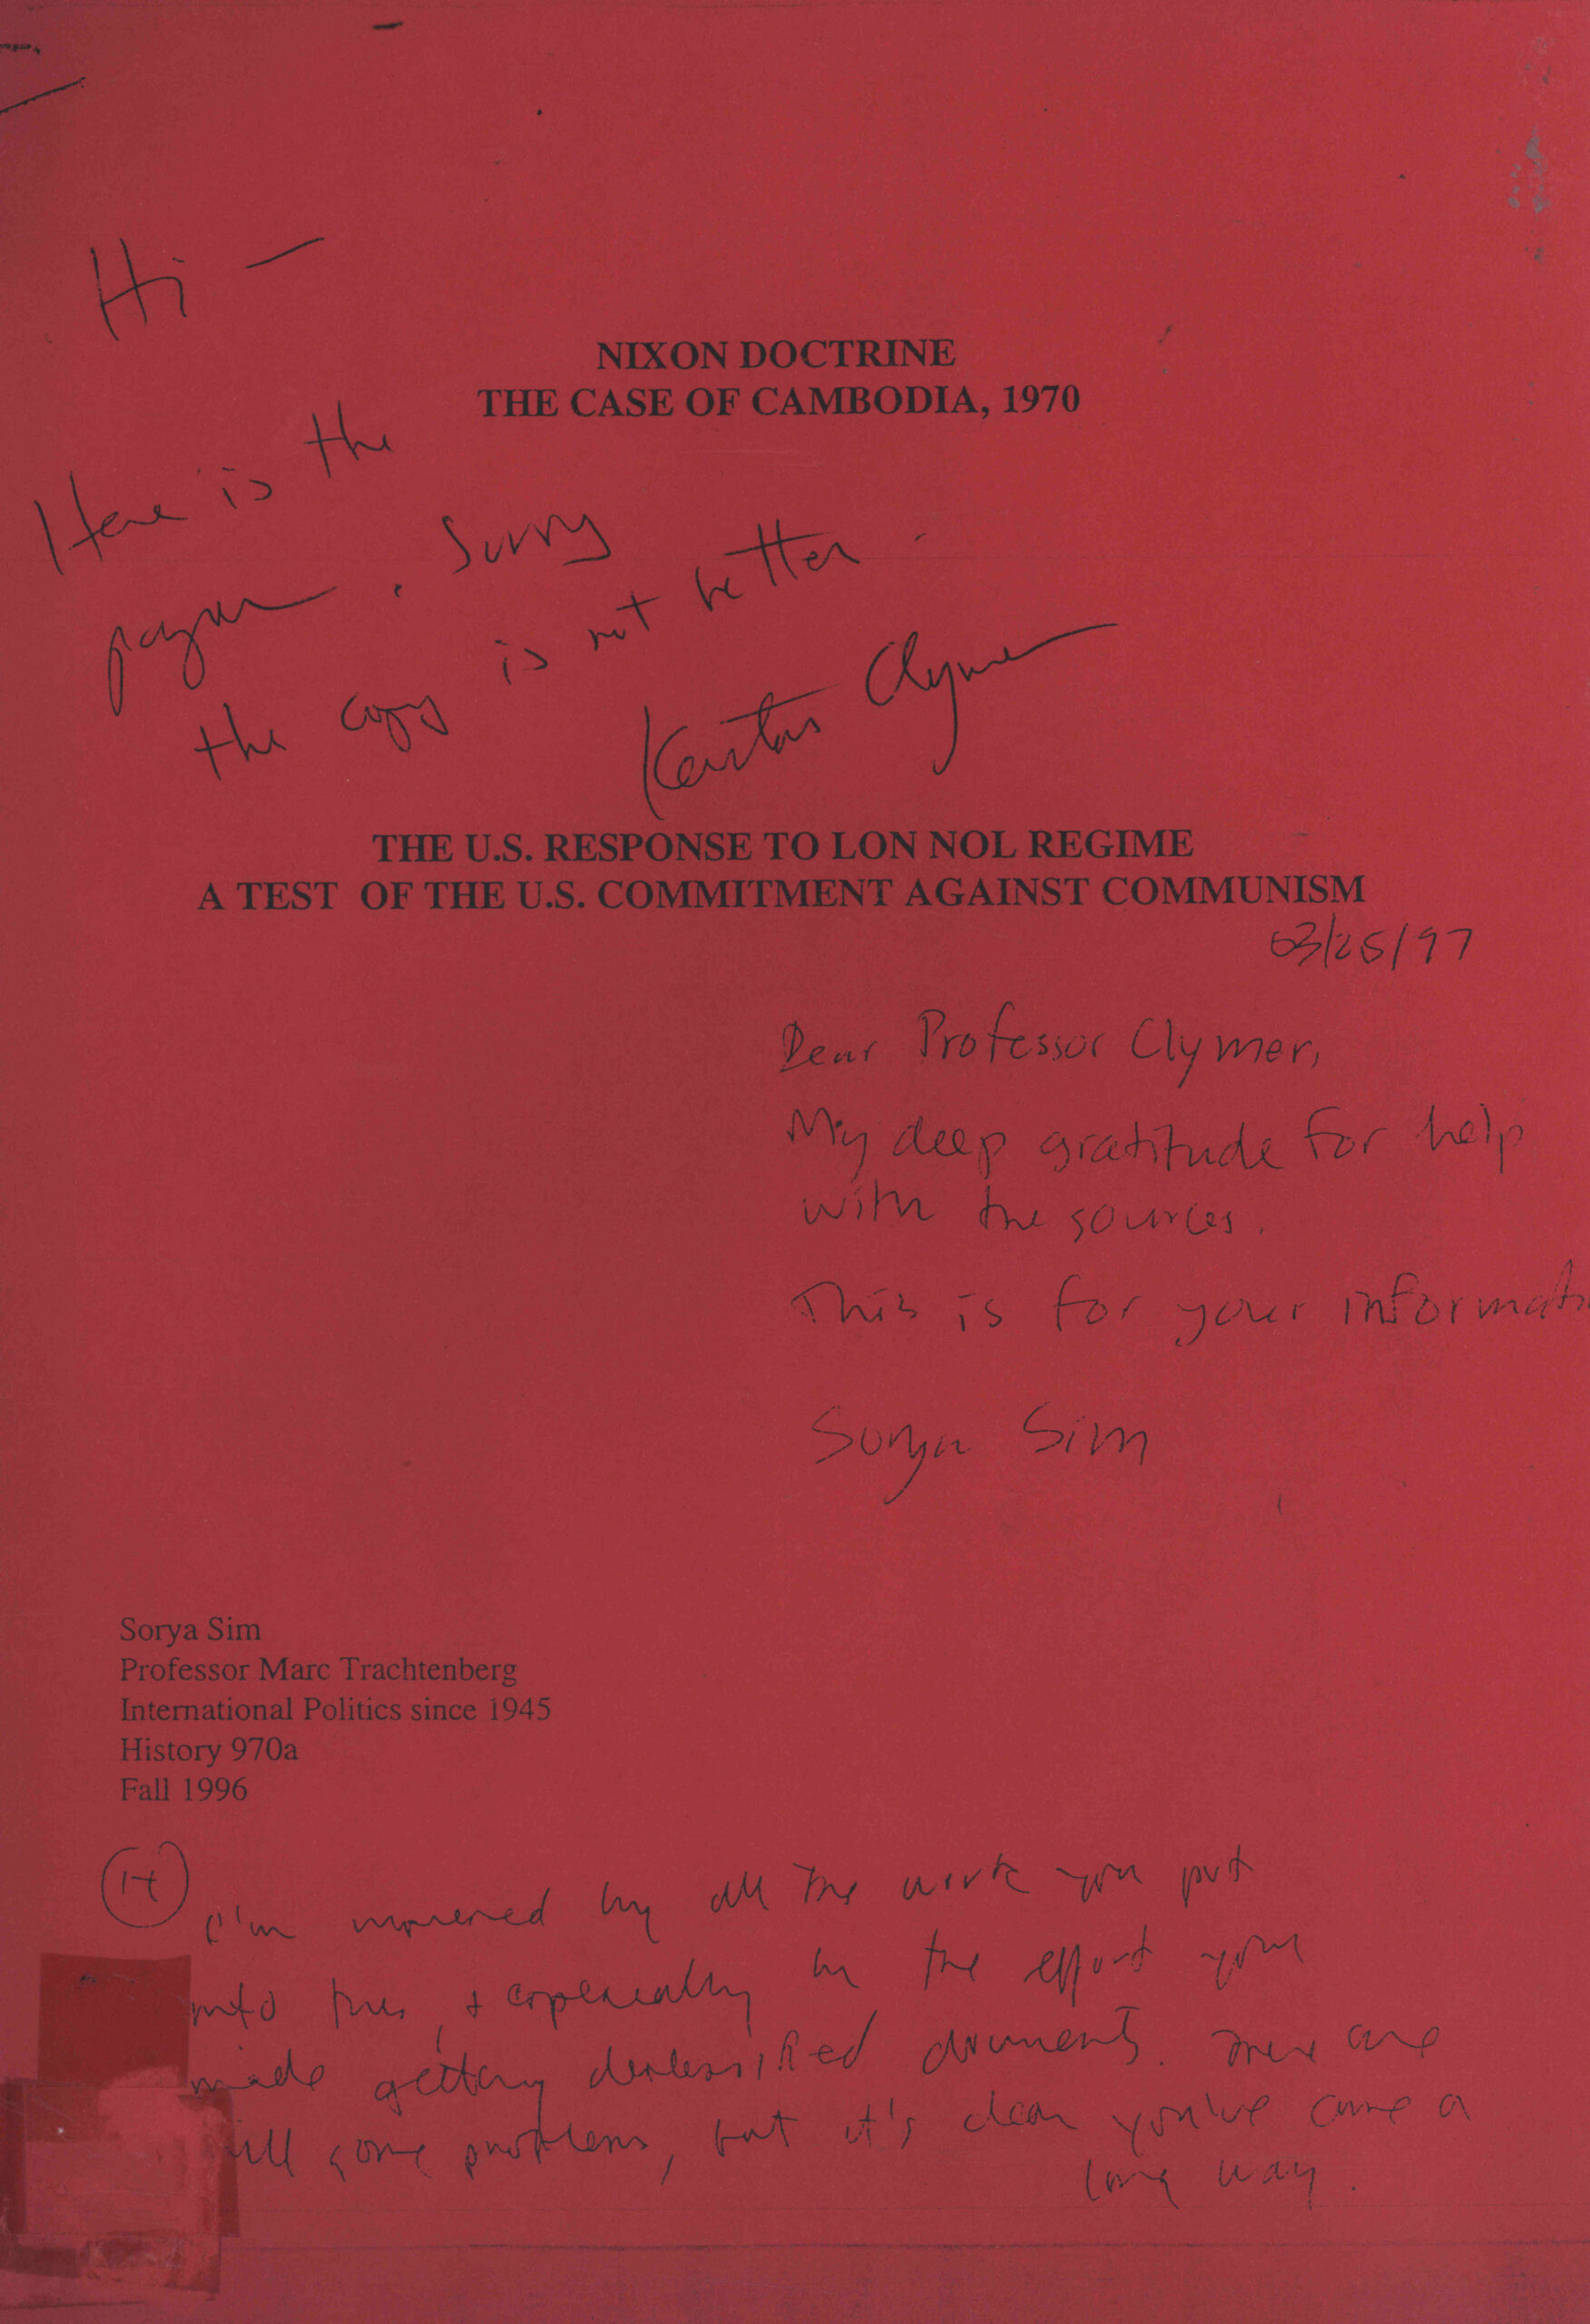 Hi —
NIXON DOCTRINE
THE CASE OF CAMBODIA, 1970
Here is the
paper. Sorry
the copy is not better.
Kenton Clymer
THE U.S. RESPONSE TO LON NOL REGIME
A TEST OF THE U.S. COMMITMENT AGAINST COMMUNISM
03/25/97
Dear Professor Clymer,
My deep gratitude for help
with the sources.
This is for your informati
Sorya Sim
Sorya Sim
Professor Marc Trachtenberg
International Politics since 1945
History 970a
Fall 1996
I'm by all the work you put
into this, + especially by the effort you
made getting declassified documents. There are
still some problems, but it's clear you've come a
long way.